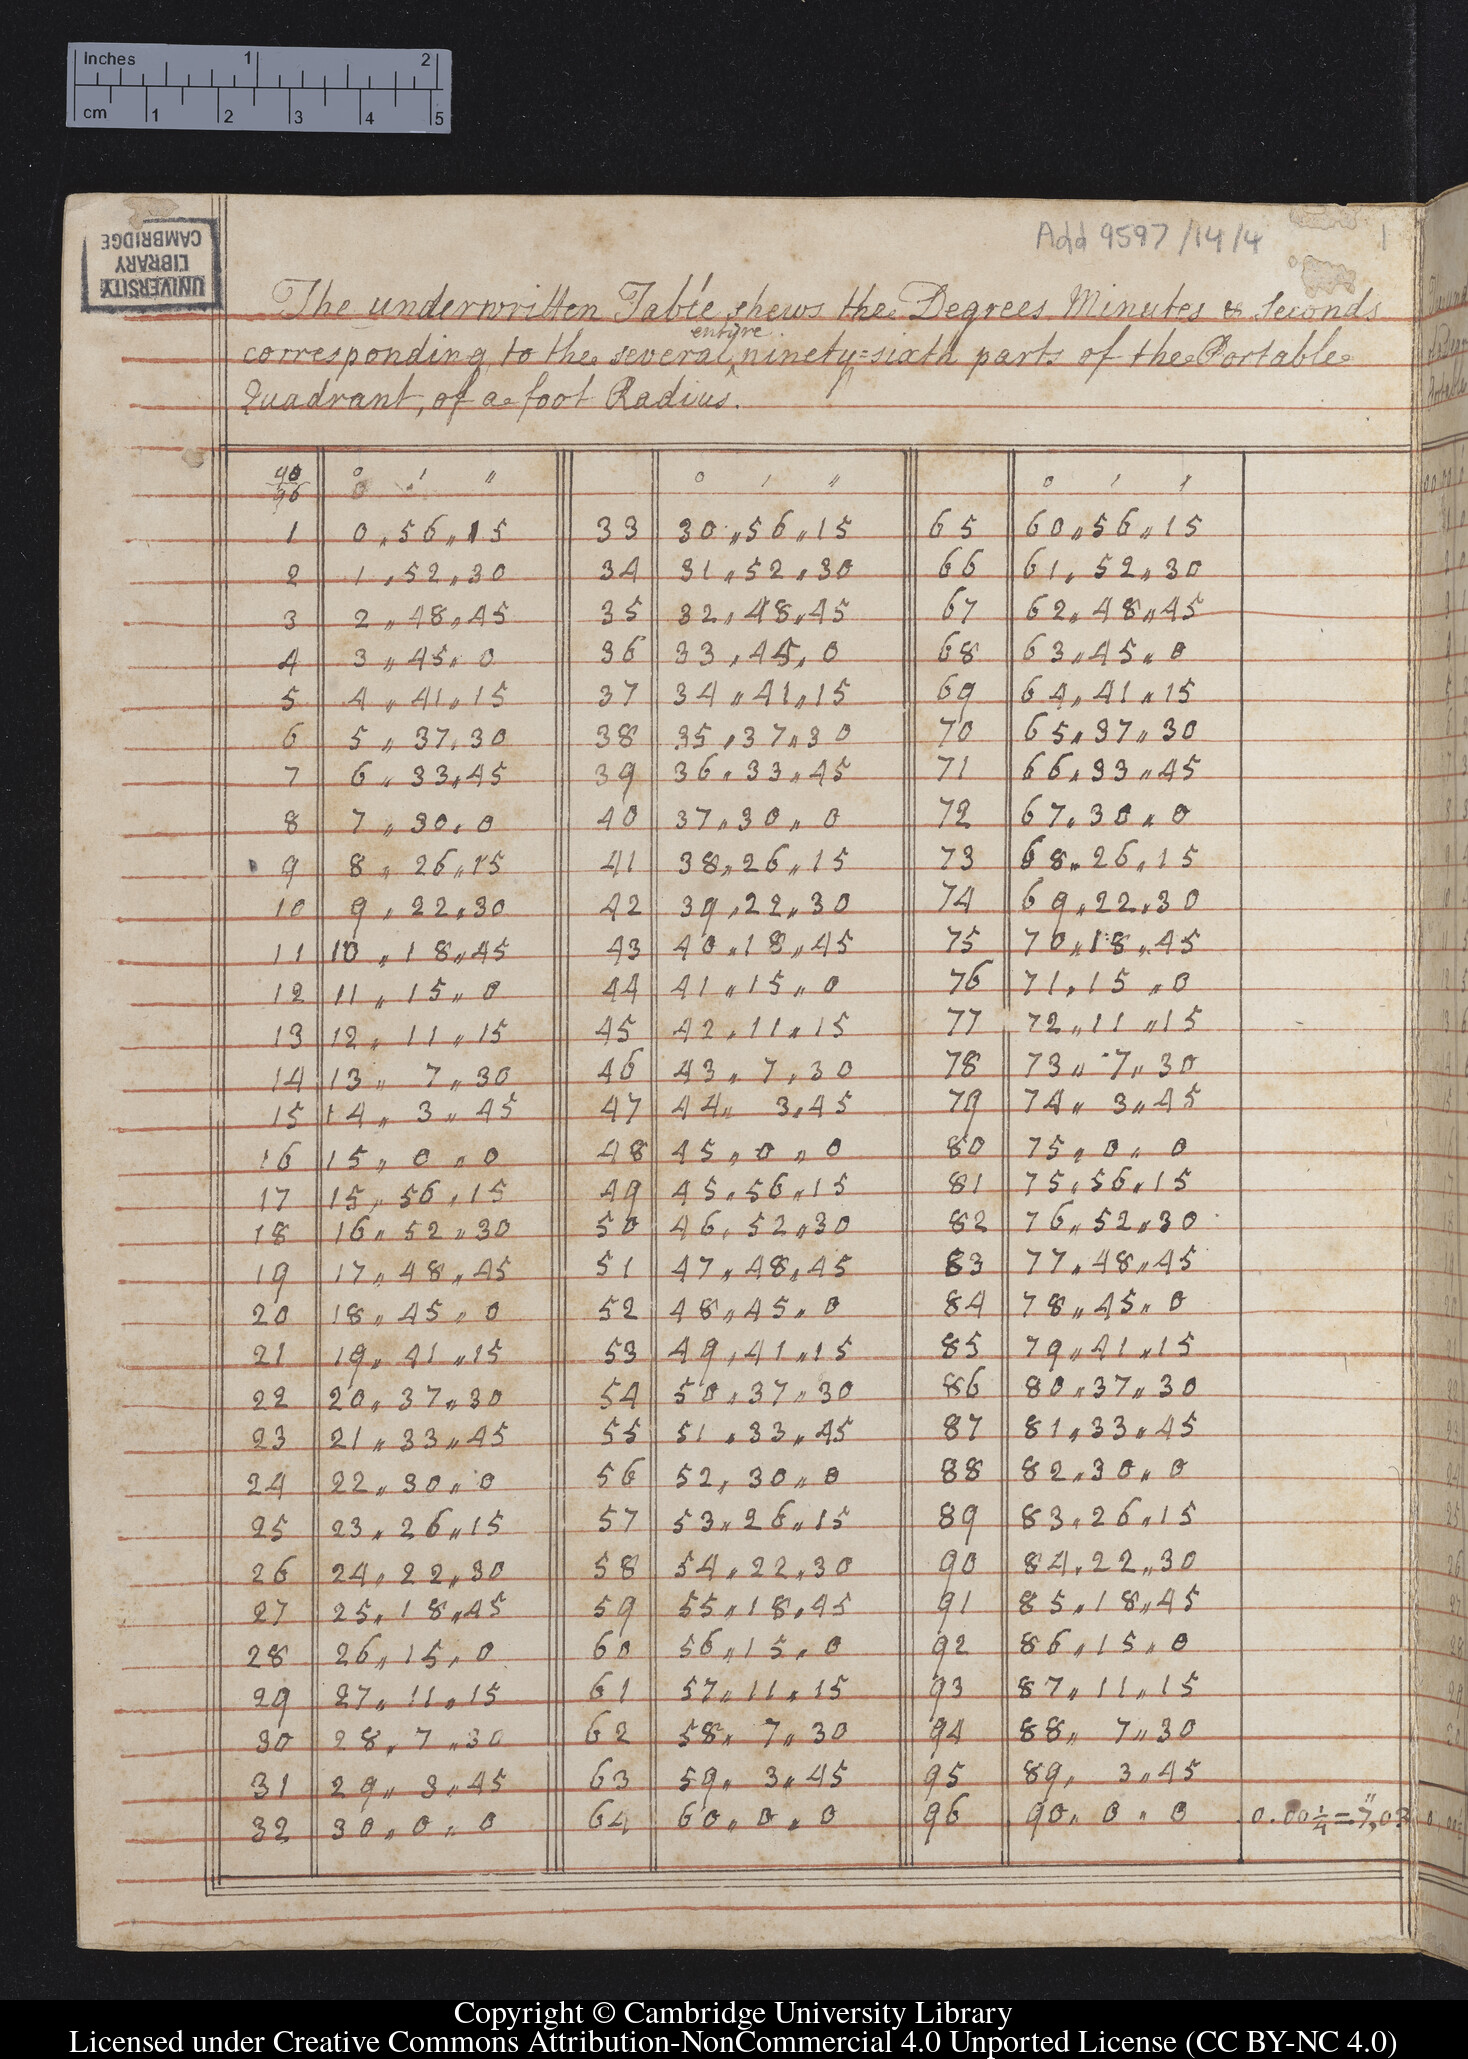 Inches 1 2
cm 1 2 3 4 5
UNIVERSITY
LIBRARY
CAMBRIDGE
Add 9597/14/4 1
The underwritten Table shews the Degrees Minutes & Seconds
entire
corresponding to the several ninety=sixth parts of the Portable
Quadrant, of a foot Radius.
90/96 0 ' " 0 ' " 0 ' "
1 0,,56,,15 33 30,,56,,15 65 60,,56,,15
2 1,,52,,30 34 31,,52,,30 66 61,,52,,30
3 2,,48,,45 35 32,,48,,45 67 62,,48,,45
4 3,,45,,0 36 33,,45,,0 68 63,,45,,0
5 4,,41,,15 37 34,,41,,15 69 64,,41,,15
6 5,,37,,30 38 35,,37,,30 70 65,,37,,30
7 6,,33,,45 39 36,,33,,45 71 66,,33,,45
8 7,,30,,0 40 37,,30,,0 72 67,,30,,0
9 8,,26,,15 41 38,,26,,15 73 68,,26,,15
10 9,,22,,30 42 39,,22,,30 74 69,,22,,30
11 10,,18,,45 43 40,,18,,45 75 70,,18,,45
12 11,,15,,0 44 41,,15,,0 76 71,,15,,0
13 12,,11,,15 45 42,,11,,15 77 72,,11,,15
14 13,,7,,30 46 43,,7,,30 78 73,,7,,30
15 14,,3,,45 47 44,,3,,45 79 74,,3,,45
16 15,,0,,0 48 45,,0,,0 80 75,,0,,0
17 15,,56,,15 49 45,,56,,15 81 75,,56,,15
18 16,,52,,30 50 46,,52,,30 82 76,,52,,30
19 17,,48,,45 51 47,,48,,45 83 77,,48,,45
20 18,,45,,0 52 48,,45,,0 84 78,,45,,0
21 19,,41,,15 53 49,,41,,15 85 79,,41,,15
22 20,,37,,30 54 50,,37,,30 86 80,,37,,30
23 21,,33,,45 55 51,,33,,45 87 81,,33,,45
24 22,,30,,0 56 52,,30,,0 88 82,,30,,0
25 23,,26,,15 57 53,,26,,15 89 83,,26,,15
26 24,,22,,30 58 54,,22,,30 90 84,,22,,30
27 25,,18,,45 59 55,,18,,45 91 85,,18,,45
28 26,,15,,0 60 56,,15,,0 92 86,,15,,0
29 27,,11,,15 61 57,,11,,15 93 87,,11,,15
30 28,,7,,30 62 58,,7,,30 94 88,,7,,30
31 29,,3,,45 63 59,,3,,45 95 89,,3,,45
32 30,,0,,0 64 60,,0,,0 96 90,,0,,0 0.00 1/4 = 7",03
Copyright © Cambridge University Library
Licensed under Creative Commons Attribution-NonCommercial 4.0 Unported License (CC BY-NC 4.0)